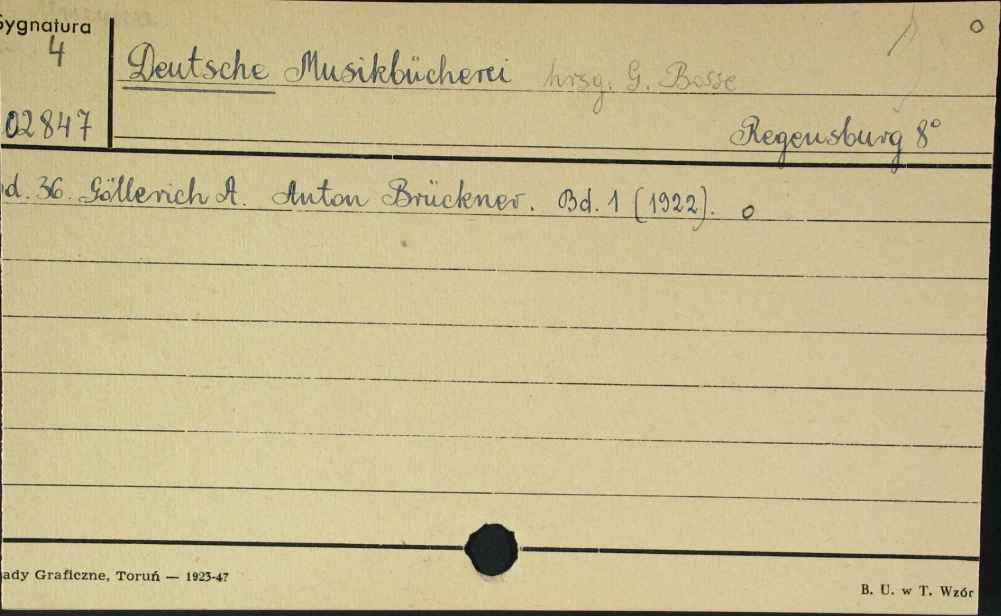 Sygnatura
4
Deutsche Musikbücherei hrsg. G. Bosse
02847
Regensburg 8°
d. 36. Göllerich A. Anton Brückner. Bd. 1 (1922). o
ady Graficzne, Toruń — 1923-47
B. U. w T. Wzór